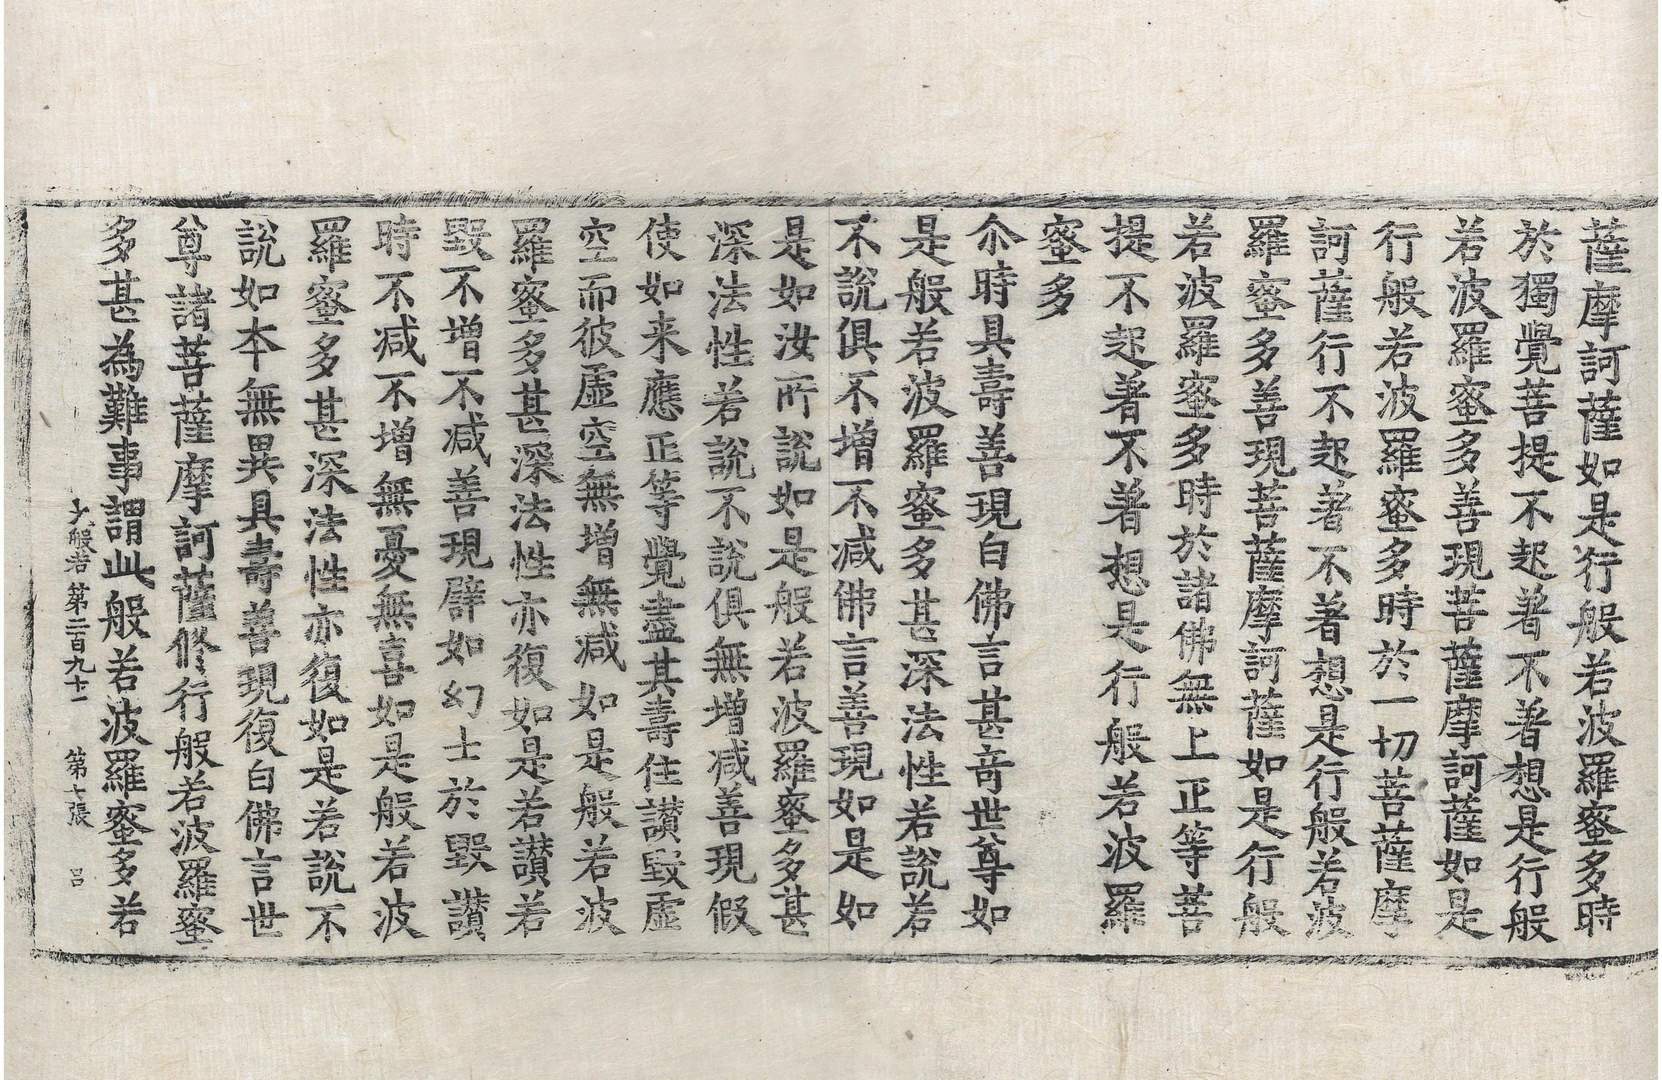 薩摩訶薩如是行般若波羅蜜多時
於獨覺菩提不起著不著想是行般
若波羅蜜多善現菩薩摩訶薩如是
行般若波羅蜜多時於一切菩薩摩
訶薩行不起著不著想是行般若波
羅蜜多善現菩薩摩訶薩如是行般
若波羅蜜多時於諸佛無上正等菩
提不起著不著想是行般若波羅
蜜多
尒時具壽善現白佛言甚奇世尊如
是般若波羅蜜多甚深法性若說若
不說俱不增不减佛言善現如是如
是如汝所說如是般若波羅蜜多甚
深法性若說不說俱無增减善現假
使如来應正等覺盡其壽住讃毀虛
空而彼虛空無增無减如是般若波
羅蜜多甚深法性亦復如是若讃若
毀不增不减善現譬如幻士於毀讃
時不减不增無憂無喜如是般若波
羅蜜多甚深法性亦復如是若說不
說如本無異具壽善現復白佛言世
尊諸菩薩摩訶薩修行般若波羅蜜
多甚為難事謂此般若波羅蜜多若
大般若第二百九十一 第七張 呂